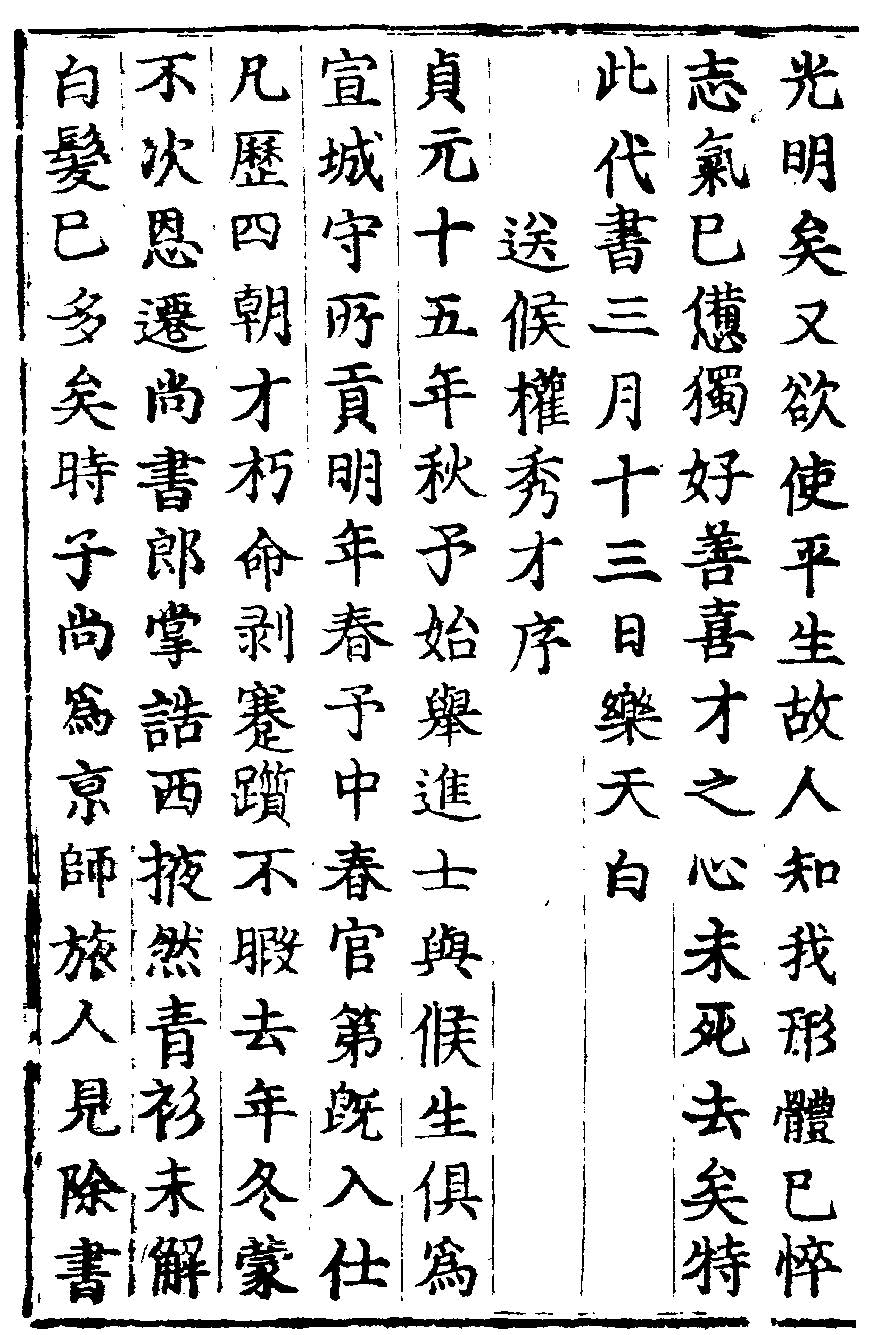 光明矣又欲使平生故人知我形體巳悴
志氣巳憊獨好善喜才之心未死去矣特
此代書三月十三日樂天白
送侯權秀才序
貞元十五年秋予始舉進士與侯生俱爲
宣城守所貢明年春予中春官第旣入仕
凡歷四朝才朽命剥蹇躓不暇去年冬蒙
不次恩遷尚書郎掌誥西掖然青衫未解
白髮巳多矣時子尚爲京師旅人見除書